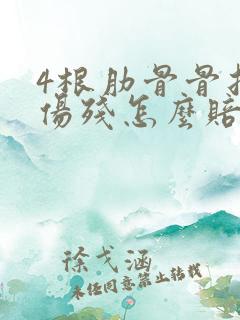 4根肋骨骨
傷殘怎麼賠
徐戈涵
未经同意禁止转载